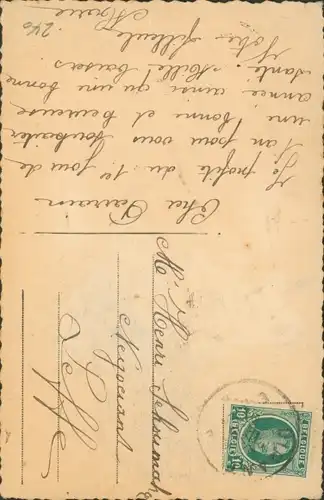 Cher Parrain
Je profite du 1er jour de
l'an pour vous souhaiter
une bonne et heureuse
année ainsi qu'une bonne
santé. Mille baisers
Votre filleule
Marie
Mr Henri
Négociant
BELGIQUE
BELGIE
10
10